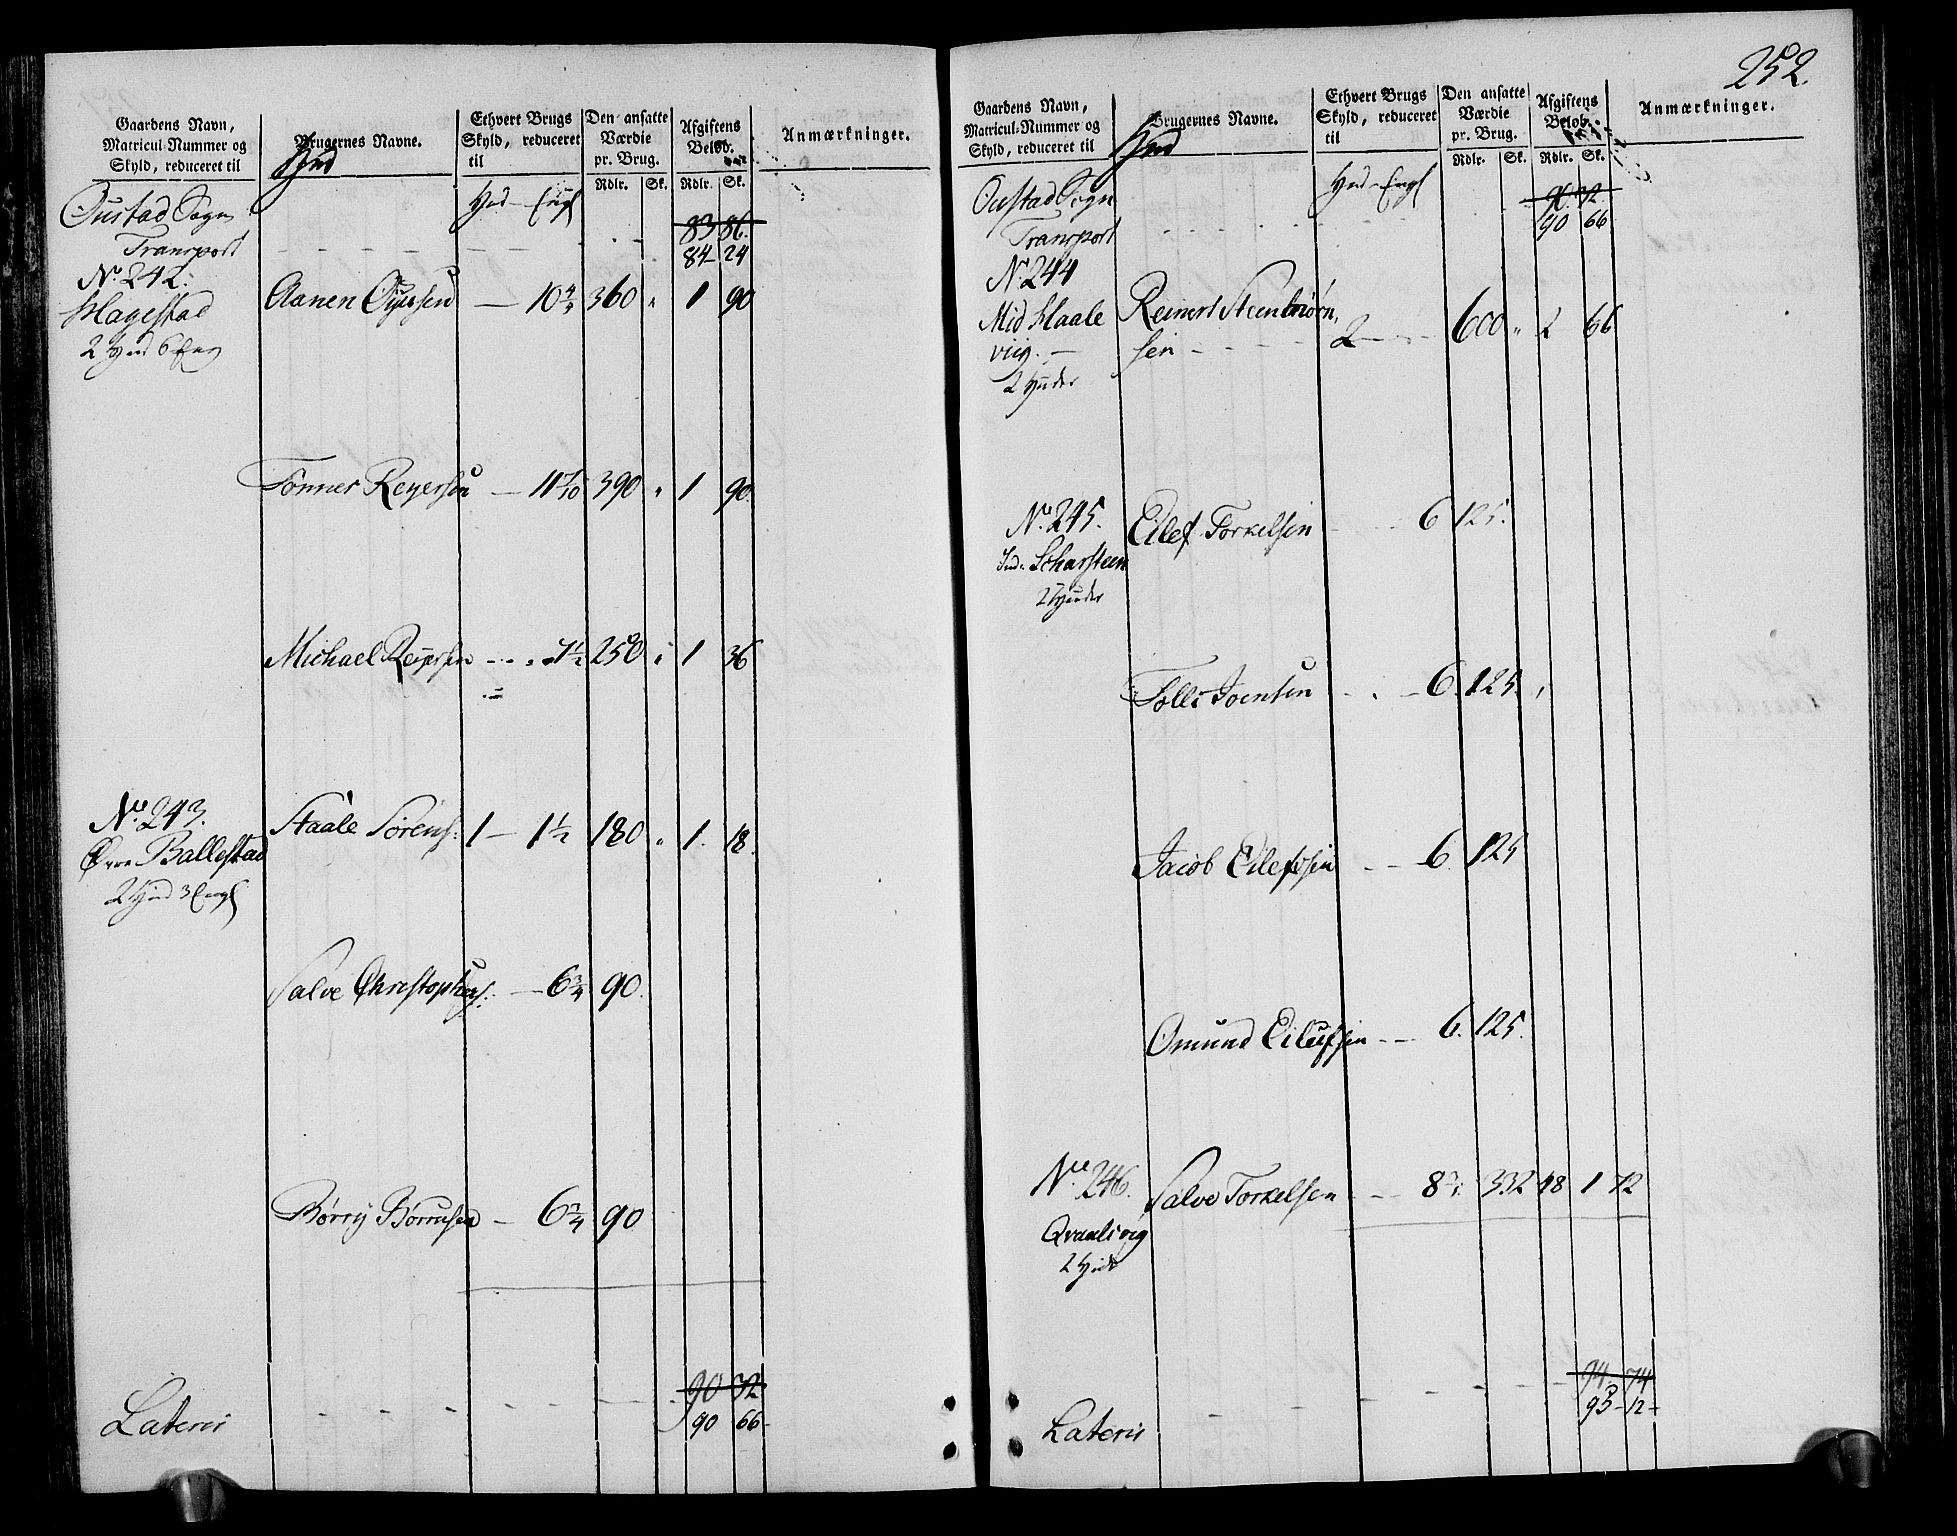 252.
Gaardens Navn, Matricul-Nummer og Skyld, reduceret til
Brugernes Navne.
Ethvert Brugs Skyld, reduceret til
Den ansatte Værdie pr. Brug.
Afgiftens Beløb.
Anmærkninger.
Rdlr. Sk. Rdlr. Sk.
Hud - Eng
Oustad Sogn
Transport 83 86.
84 24
No. 242.
Aanen Oyersen 10 4/5 360 " 1 90
Hagestad
2 Hud 6 Eng
Tønnes Reyersen 11 7/10 390 " 1 90.
Michael Reyersen 7 1/2 250 " 1 36
No. 243.
Staale Sørens: 1 - 1 1/2 180 " 1. 18.
Øvre Ballestad
2 Hud 3 Engl
Salve Christophers: 6 3/4 90.
Børry Børrusen 6 3/4 90
90 32
Lateris 90 66
Gaardens Navn, Matricul-Nummer og Skyld, reduceret til
Brugernes Navne.
Ethvert Brugs Skyld, reduceret til
Den ansatte Værdie pr. Brug.
Afgiftens Beløb.
Anmærkninger.
Rdlr. Sk. Rdlr. Sk.
Hud - Engl
Oustad Sogn 90. 32.
Transport 90 66
No. 244
Mid Haale Reinert Steenbiørn,
viig. sen 2 600 " 2 66
2 Huder
No. 245. Eilef Torkelsen 6 125.
Ind. Scharsteen
2 Huder
Tolle Joensen 6. 125.
Jacob Eilefsen 6 125
Omund Eilefsen 6. 125.
No. 246. Salve Torkelsen 332 48 1 72
Qvaalsvig
2 Hud
94 74
Lateris 95 - 12 -